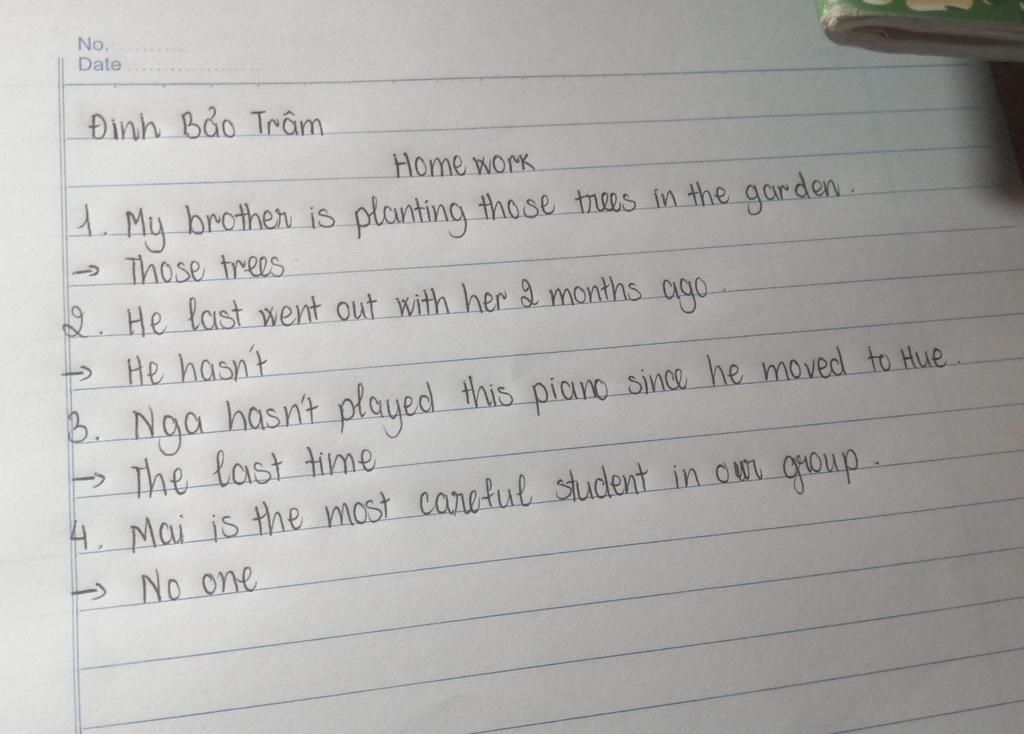 No.
Date
Đinh Bảo Trâm
Home work
1. My brother is planting those trees in the garden.
→ Those trees
2. He last went out with her 2 months ago.
→ He hasn't
3. Nga hasn't played this piano since he moved to Hue.
→ The last time
4. Mai is the most careful student in our group.
→ No one